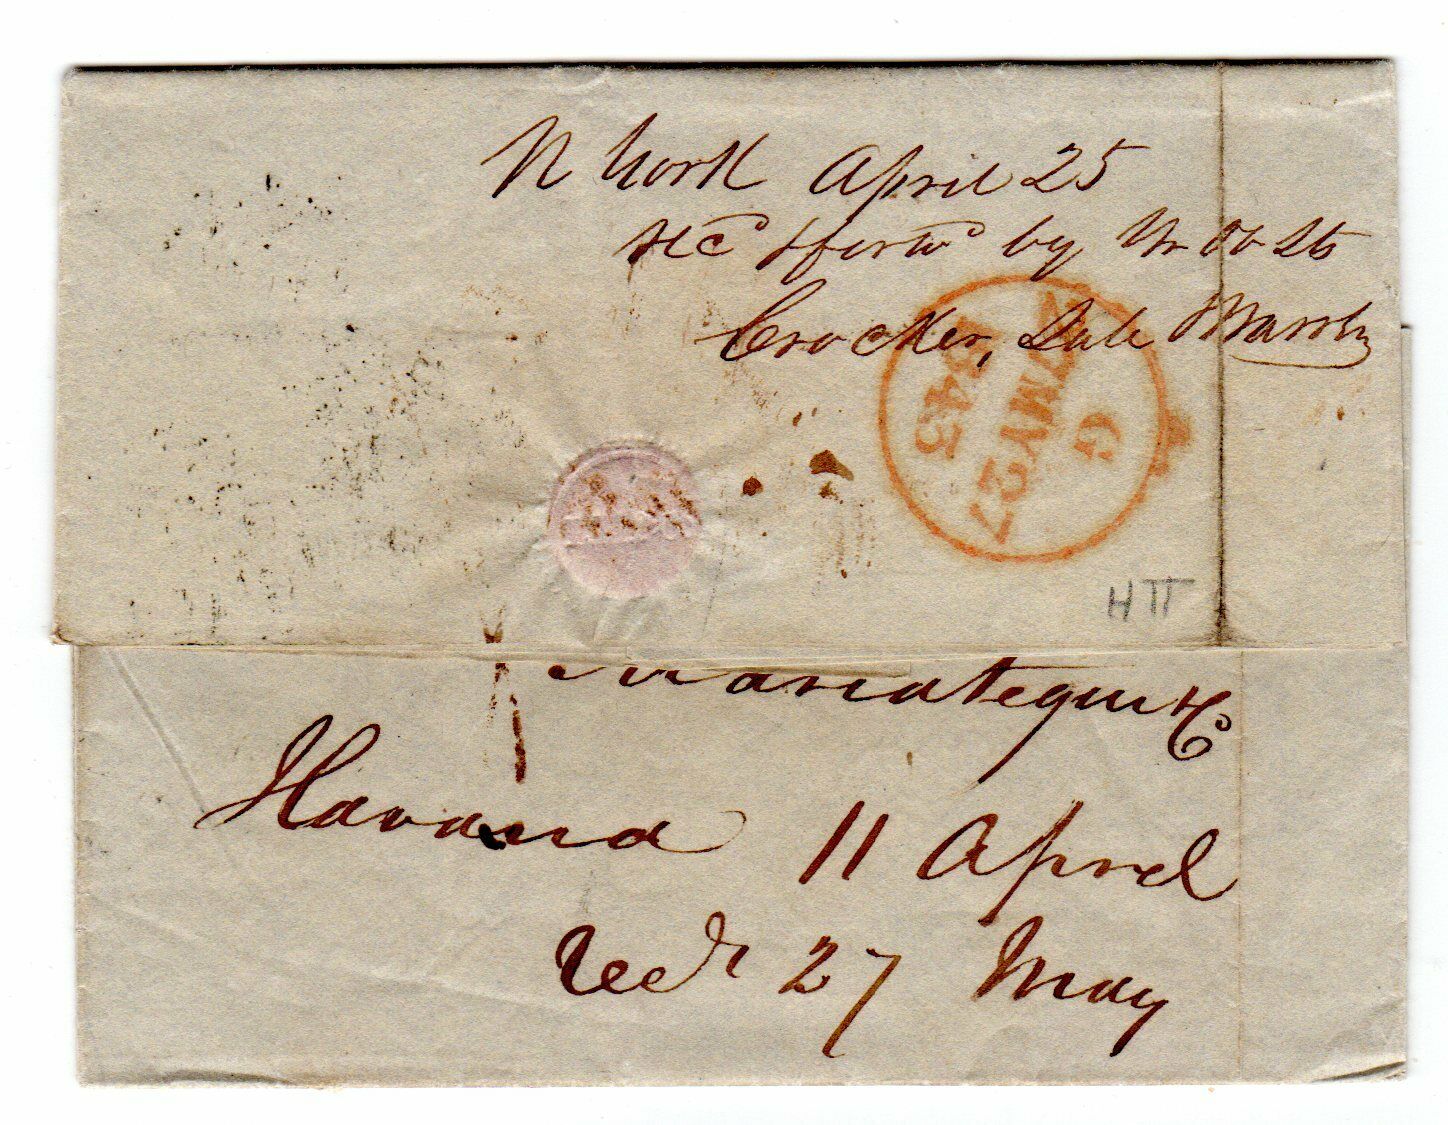 N York April 25
recd & forwd by Yr Ob St
Crocker,
G
27 MY 27
1845
H TT
Mariategui & Co
Havana 11 April
Recd 27 May